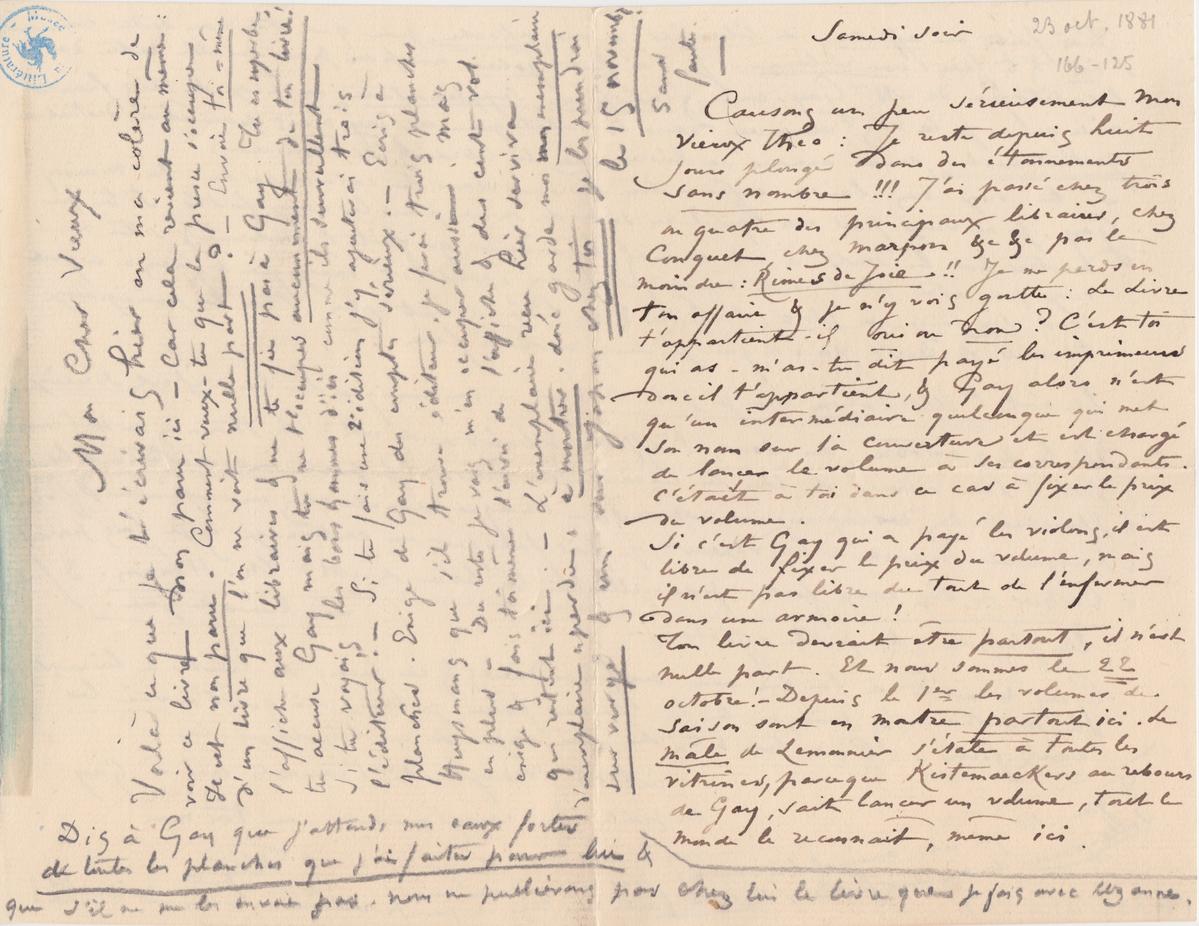 Samedi soir
23 oct. 1881
166-125
Causons un peu sérieusement mon
vieux Théo : Je reste depuis huit
jours plongé dans des étonnements
sans nombre !!! J'ai passé chez trois
ou quatre des principaux libraires, chez
Conquet chez marpon &c &c pas la
moindre : Rimes de Joie !! Je ne perds en
ton affaire & je n'y vois goutte : Le Livre
t'appartient-il oui ou non ? C'est toi
qui as - m'as-tu dit payé les imprimeurs
donc il t'appartient, & Gay alors n'est
qu'un intermédiaire quelconque qui met
son nom sur la couverture et est chargé
de lancer le volume à ses correspondants.
C'était à toi dans ce cas à fixer le prix
du volume.
Si c'est Gay qui a payé les violons, il est
libre de fixer le prix du volume, mais
il n'est pas libre du tout de l'enfermer
dans une armoire !
Ton livre devrait être partout, il n'est
nulle part. Et nous sommes le 22
octobre ! - Depuis le 1er les volumes de
saison sont en montre partout ici. Le
mâle de Lemonnier s'étale à toutes les
vitrines, parceque Kistemaeckers au rebours
de Gay, sait lancer un volume, tout le
monde le reconnait, même ici.
Mon Cher Vieux
Voilà ce que je t'écrivais hier en ma colère de
voir ce livre non paru ici - Car cela revient au même :
Il est non paru. Comment veux-tu que la presse s'occupe
d'un livre que l'on ne voit nulle part ? - Envoie toi-même
l'affiche aux libraires & ne te fie pas à Gay. Tu es superbe,
tu accuse Gay mais tu ne t'occupes aucunément de ton livre !
Si tu voyais les bons hommes d'ici comme ils surveillent
l'éditeur ! - Si tu fais une 2e édition j'y ajouterai trois
planches. Exige de Gay des comptes serieux. - Exige
Huysmans que s'il trouve éditeur, je ferai trois planches
en plus - Du reste je vais m'en occuper aussi mais
exige & fais toi même l'envoi de l'affiche & des cent vol.
qui restent ici. - L'exemplaire rien hier servira
d'exemplaire à montrer. donc garde moi mon exemplaire
sur & un chez toi je les prendrai
le 15 novembre
sans faute.
Dis à Gay que j'attends mes eaux fortes
de toutes les planches que j'ai faites pour lui &
que s'il ne me les envoie pas. nous ne publierons pas chez lui le livre que je fais avec Uzanne.